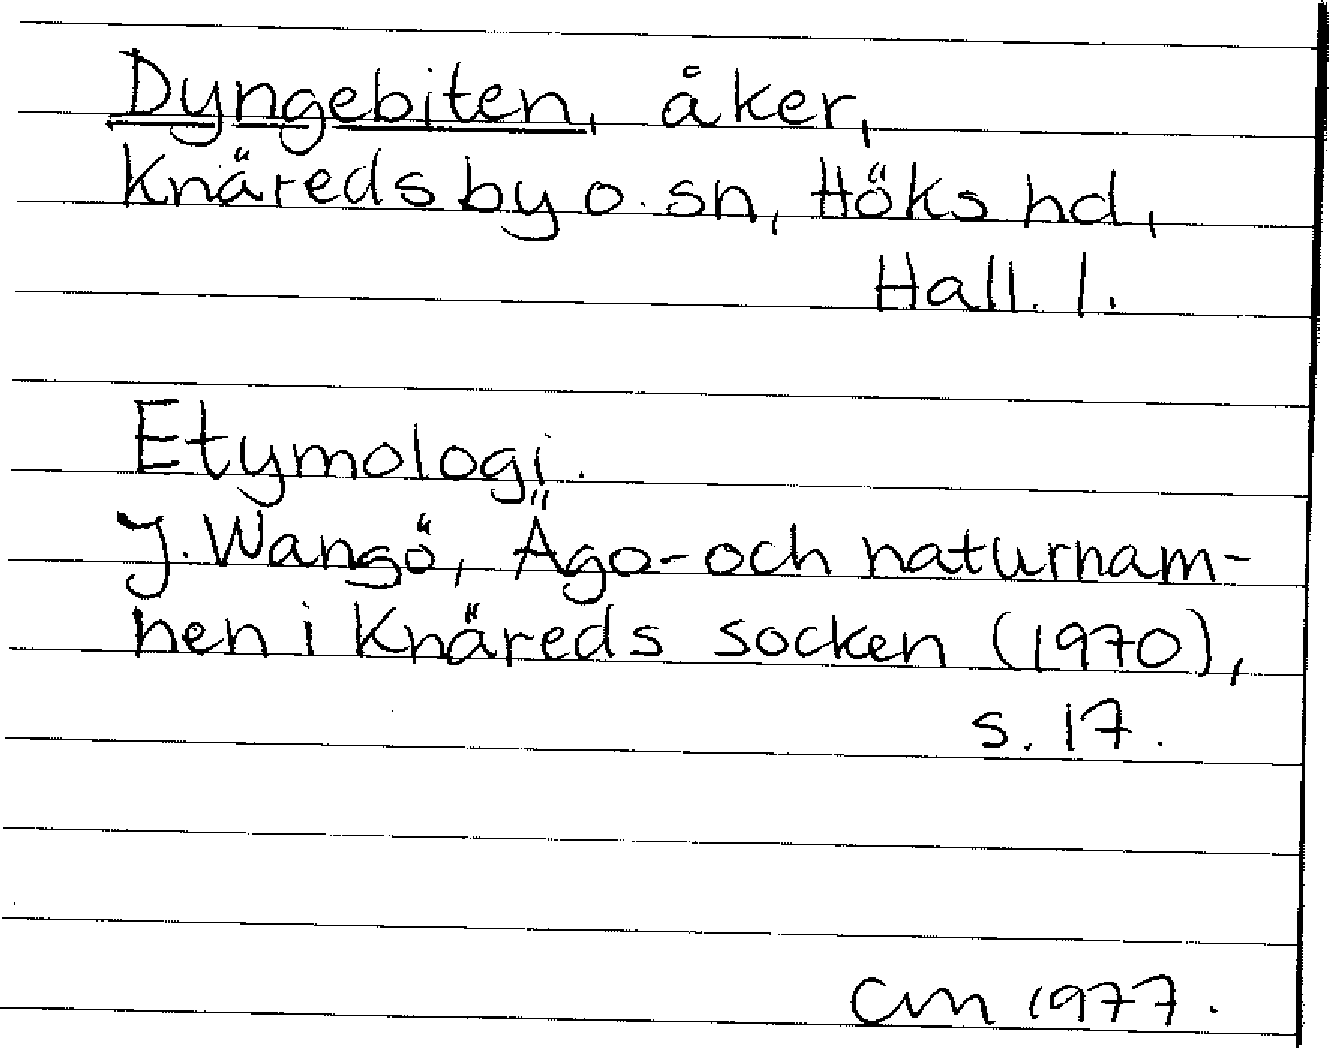 Dyngebiten, åker,
Knäreds by o. sn, Höks hd,
Hall. l.
Etymologi.
J. Wangö, Ägo- och naturnam-
nen i Knäreds socken (1970),
s. 17.
CM 1977.